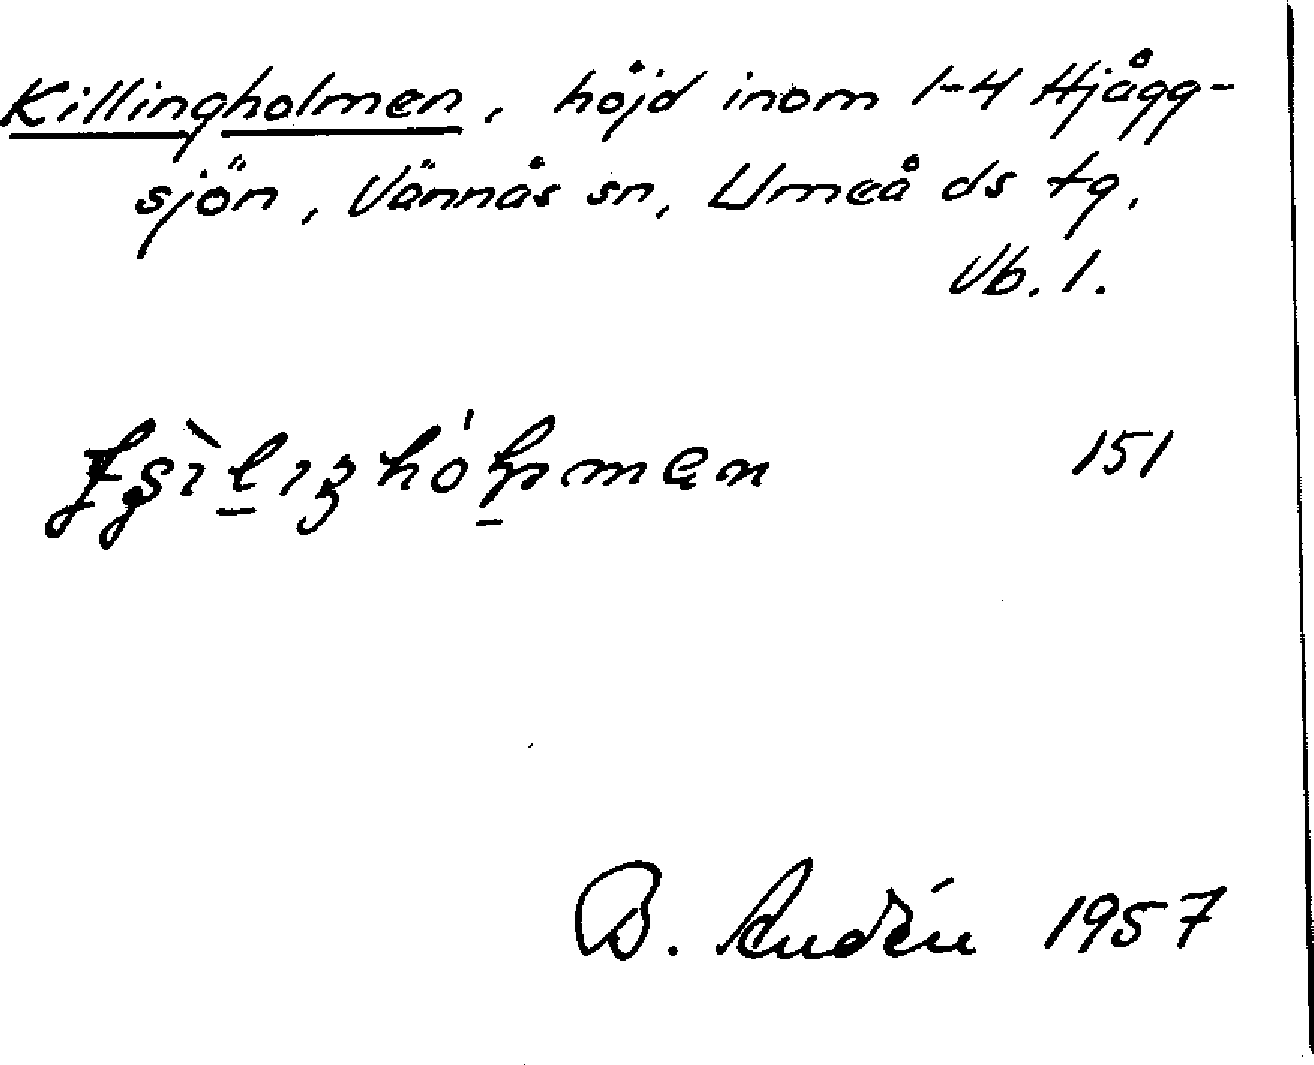 Killingholmen, höjd inom 1-4 Hjågg-
sjön, Vännäs sn, Umeå ds tg.
Vb. l.
151
B. Andén 1957